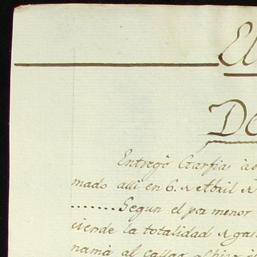 El
De
Entregò Garfias
mado aqui en 6. de Abril de
........Segun el por menor
ciende la totalidad de gas
namà al